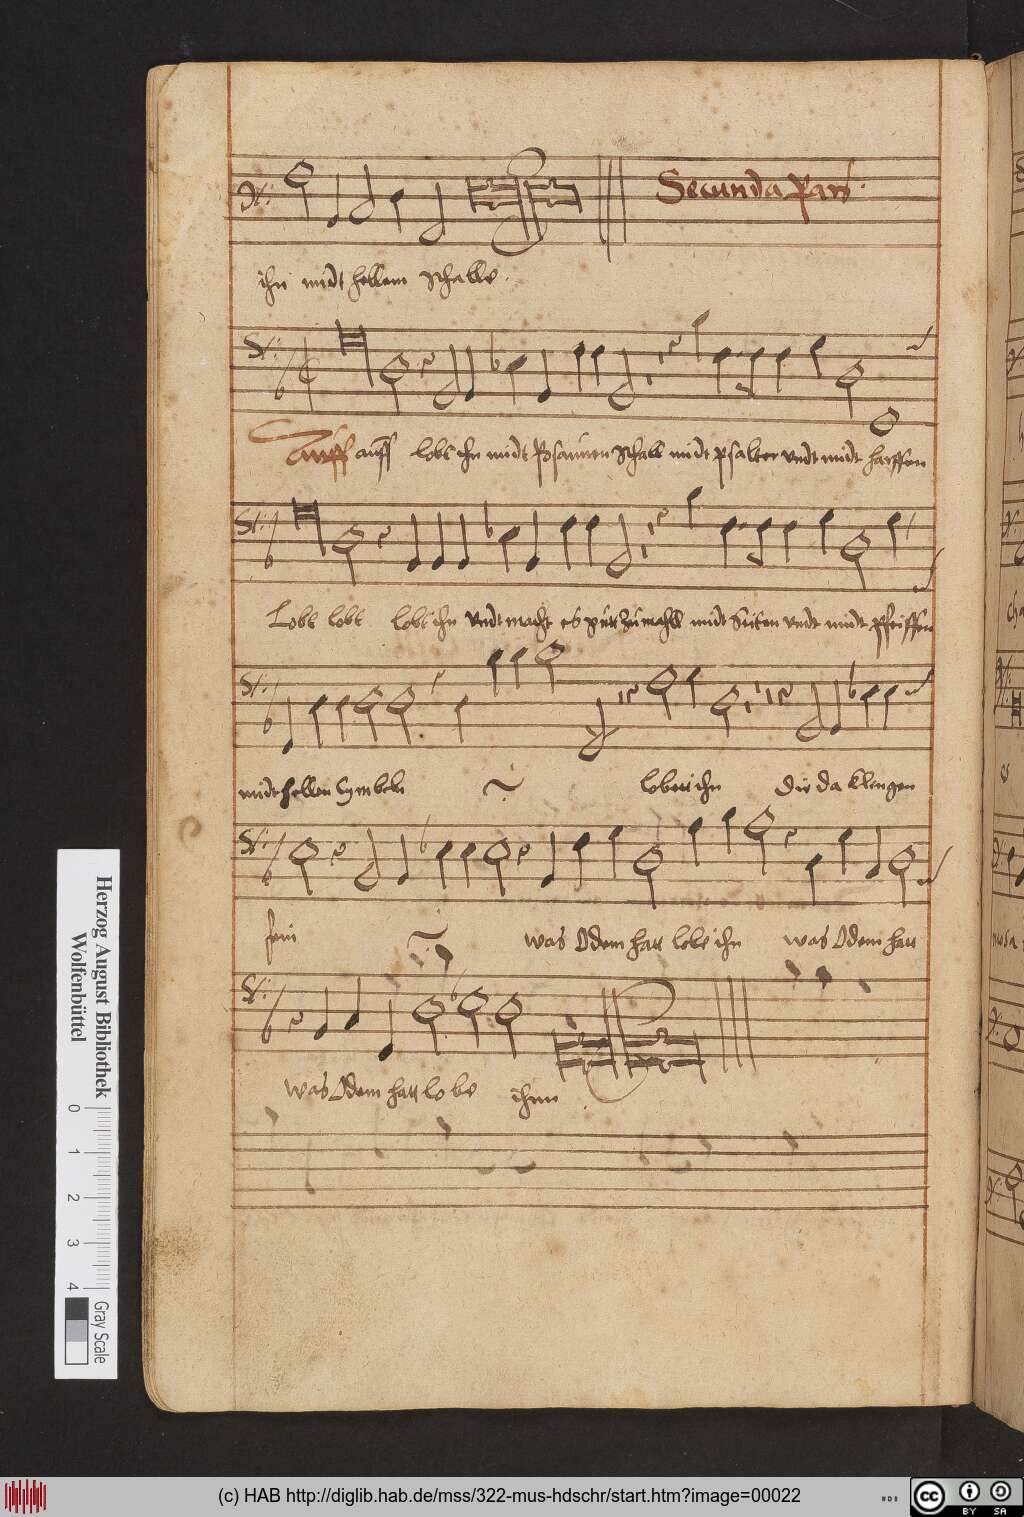 Secunda Pars.
ihn midt hellem schalle.
Auff auff lobt ihn midt Posaunen schall midt psalter undt midt harffen
Lobt lobt lobt ihn undt macht es gutt zumahll midt Seiten undt midt Pfeiffen
midt hellen Cymbeln lobett ihn die da klengen
fein was Odem hatt lobe ihn was Odem hatt
was Odem hatt lobe ihnn
Herzog August Bibliothek
Wolfenbüttel
0 1 2 3 4
Gray Scale
(c) HAB http://diglib.hab.de/mss/322-mus-hdschr/start.htm?image=00022
cc BY SA